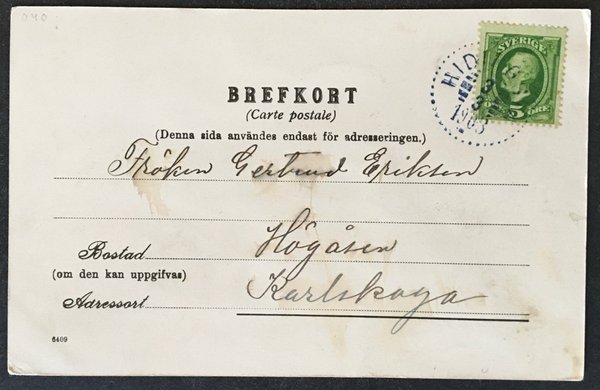 040
SVERIGE
5 ÖRE
1903
BREFKORT
(Carte postale)
(Denna sida användes endast för adresseringen.)
Fröken Gertrud Eriksen
Högåsen
Bostad
(om den kan uppgifvas)
Karlskoga
Adressort
6409